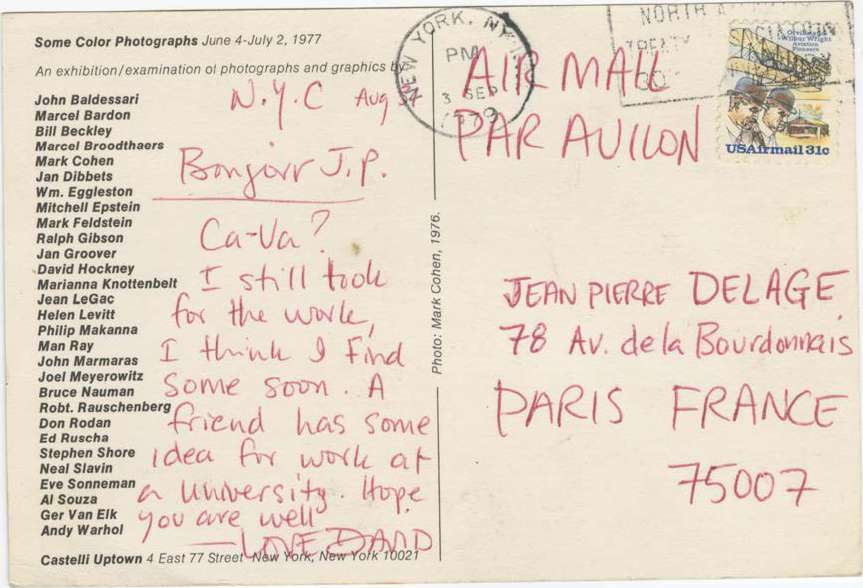 Some Color Photographs June 4-July 2, 1977
An exhibition/examination of photographs and graphics by
John Baldessari
Marcel Bardon
Bill Beckley
Marcel Broodthaers
Mark Cohen
Jan Dibbets
Wm. Eggleston
Mitchell Epstein
Mark Feldstein
Ralph Gibson
Jan Groover
David Hockney
Marianna Knottenbelt
Jean LeGac
Helen Levitt
Philip Makanna
Man Ray
John Marmaras
Joel Meyerowitz
Bruce Nauman
Robt. Rauschenberg
Don Rodan
Ed Ruscha
Stephen Shore
Neal Slavin
Eve Sonneman
Al Souza
Ger Van Elk
Andy Warhol
Castelli Uptown 4 East 77 Street New York, New York 10021
N.Y.C Aug
Bonjour J.P.
Ca-Va?
I still took
for the work,
I think I find
some soon. A
friend has some
idea for work at
a university. Hope
you are well
— LOVE DAVID
Photo: Mark Cohen, 1976.
NEW YORK, NY
PM
3 SEP
1979
NORTH
TREATY
AIR MAIL
PAR AVION
Orville and
Wilbur Wright
Aviation
Pioneers
USAirmail 31c
JEAN PIERRE DELAGE
78 Av. de la Bourdonnais
PARIS FRANCE
75007